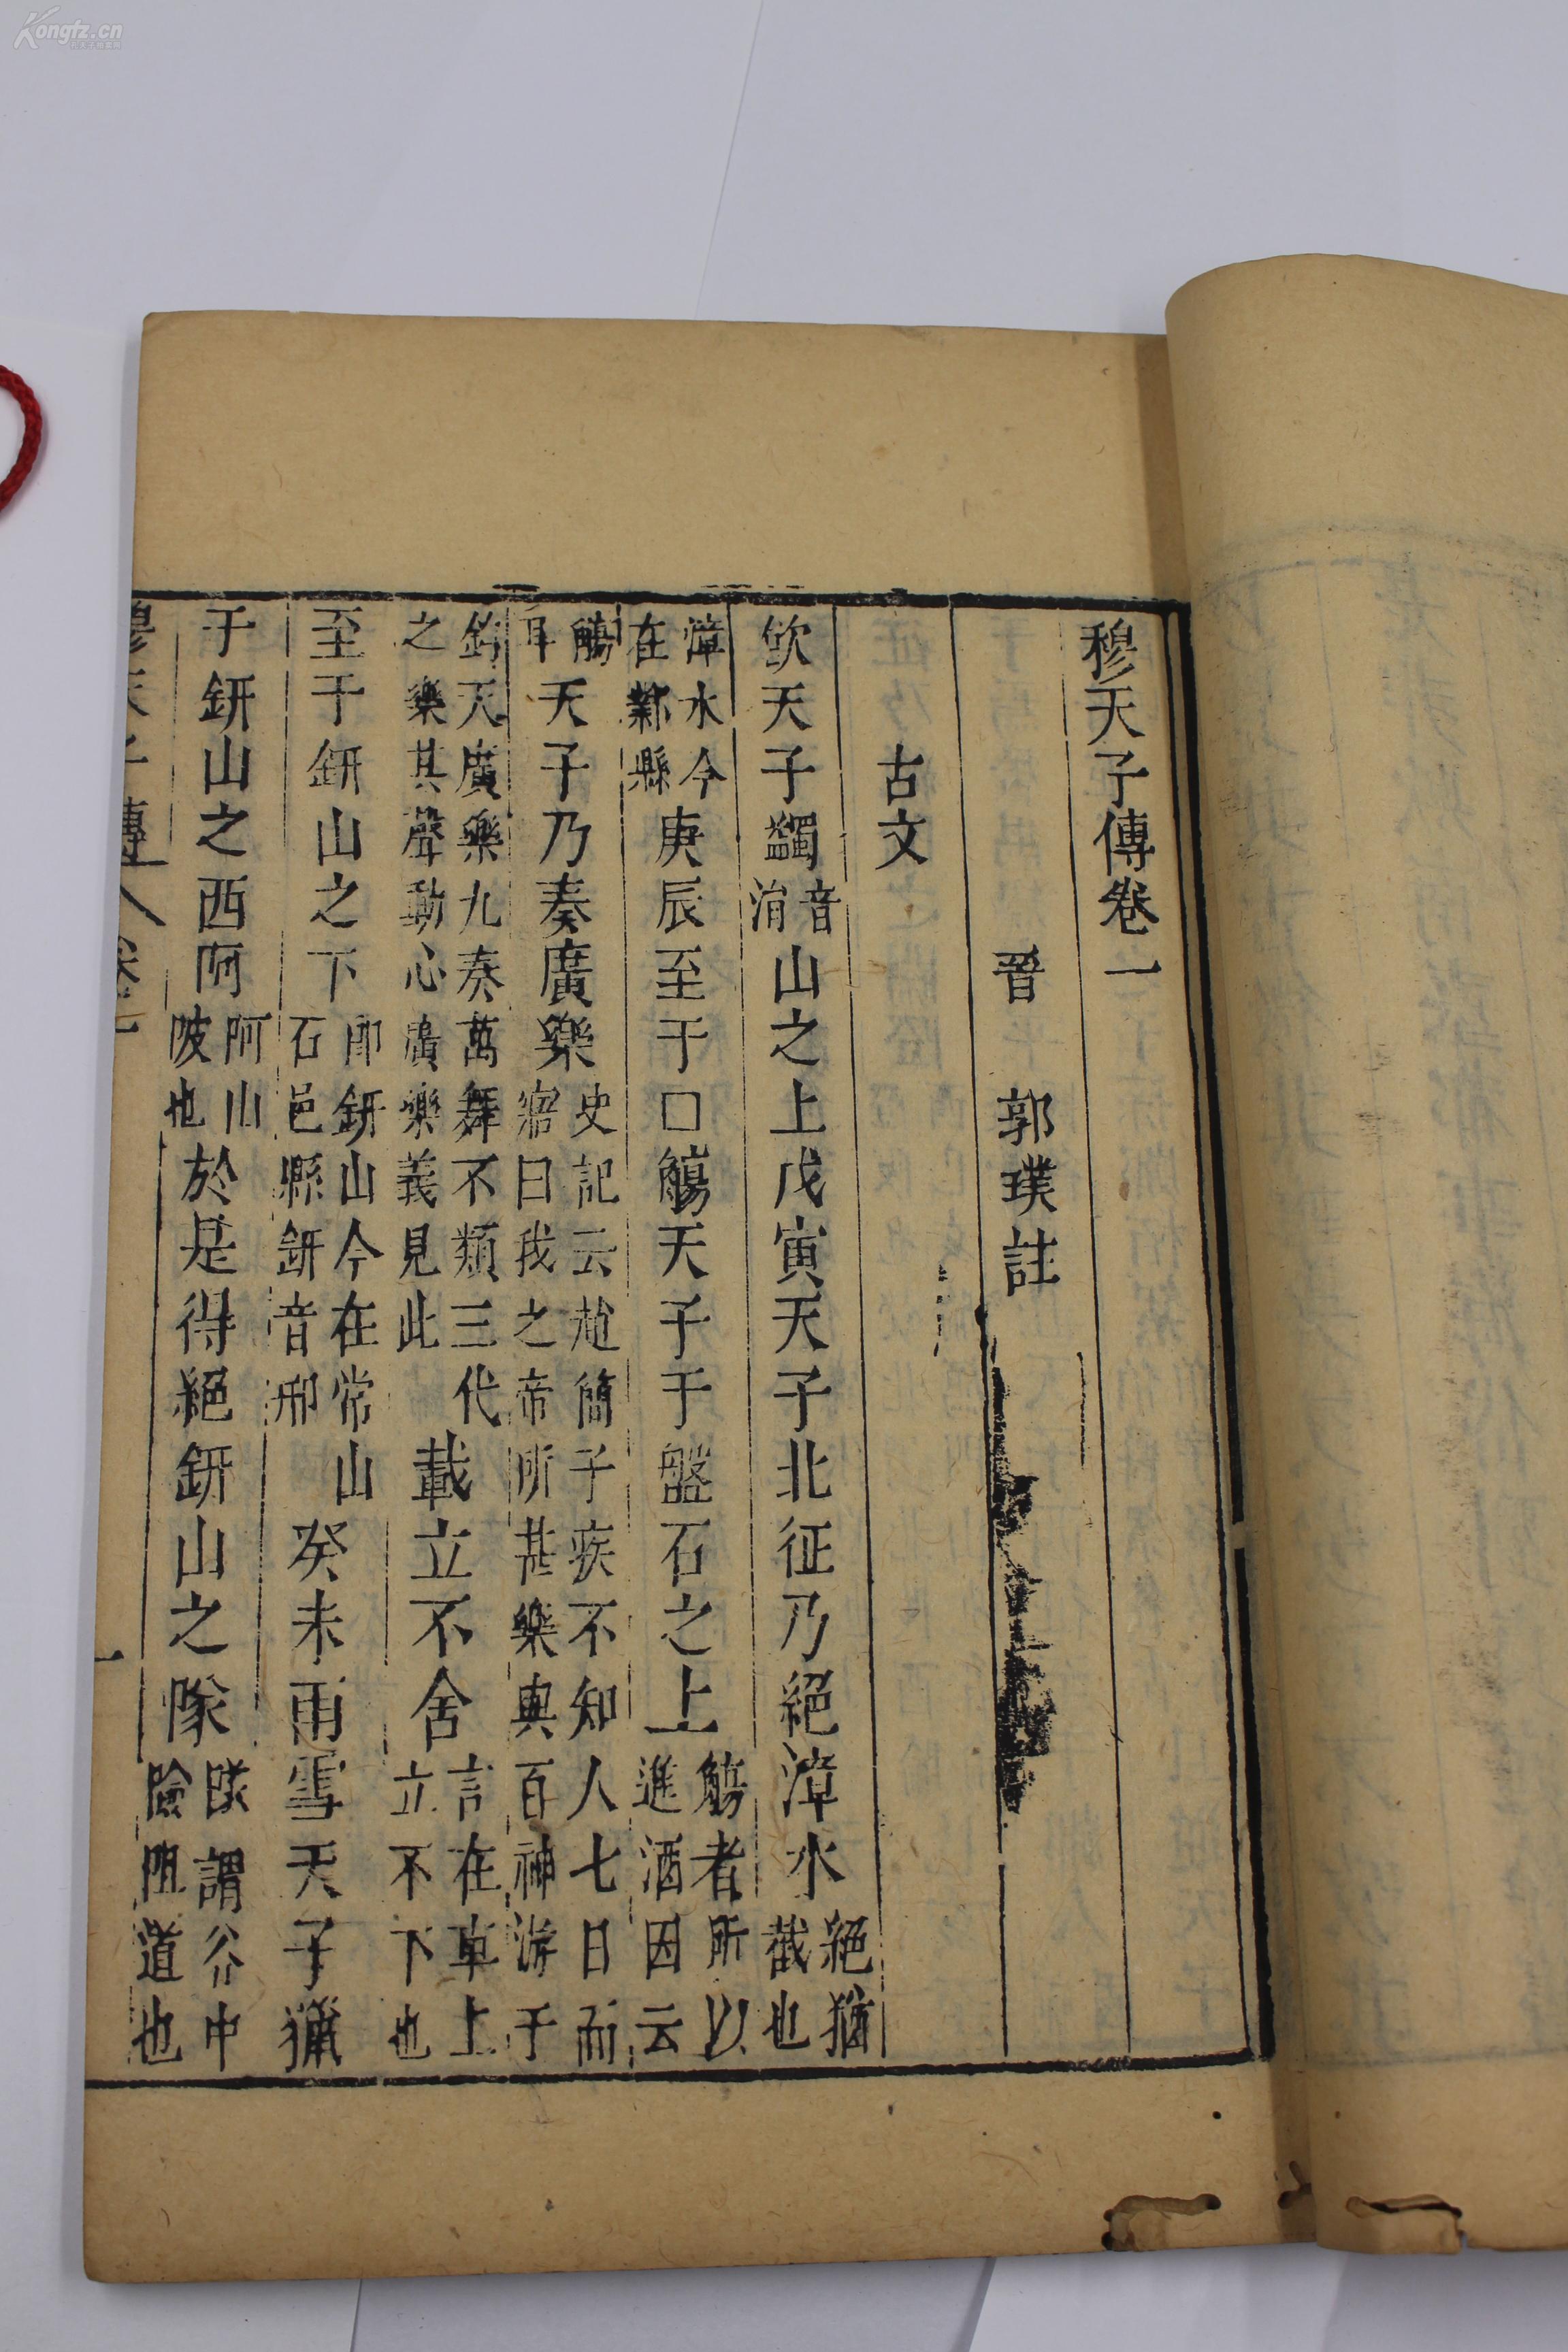 穆天子傳卷一
晉 郭璞註
古文
飲天子蠲音涓山之上戊寅天子北征乃絕漳水絕猶截也
漳水今在鄴縣庚辰至于□觴天子于盤石之上觴者所以進酒因云
觴耳天子乃奏廣樂史記云趙簡子疾不知人七日而寤曰我之帝所甚樂與百神游于
鈞天廣樂九奏萬舞不類三代之樂其聲動心廣樂義見此載立不舍言在車上立不下也
至于鈃山之下即鈃山今在常山石邑縣鈃音邢癸未雨雪天子獵
于鈃山之西阿阿山陂也於是得絕鈃山之隊隊謂谷中險阻道也
穆天子傳 卷一
一
Kongfz.cn